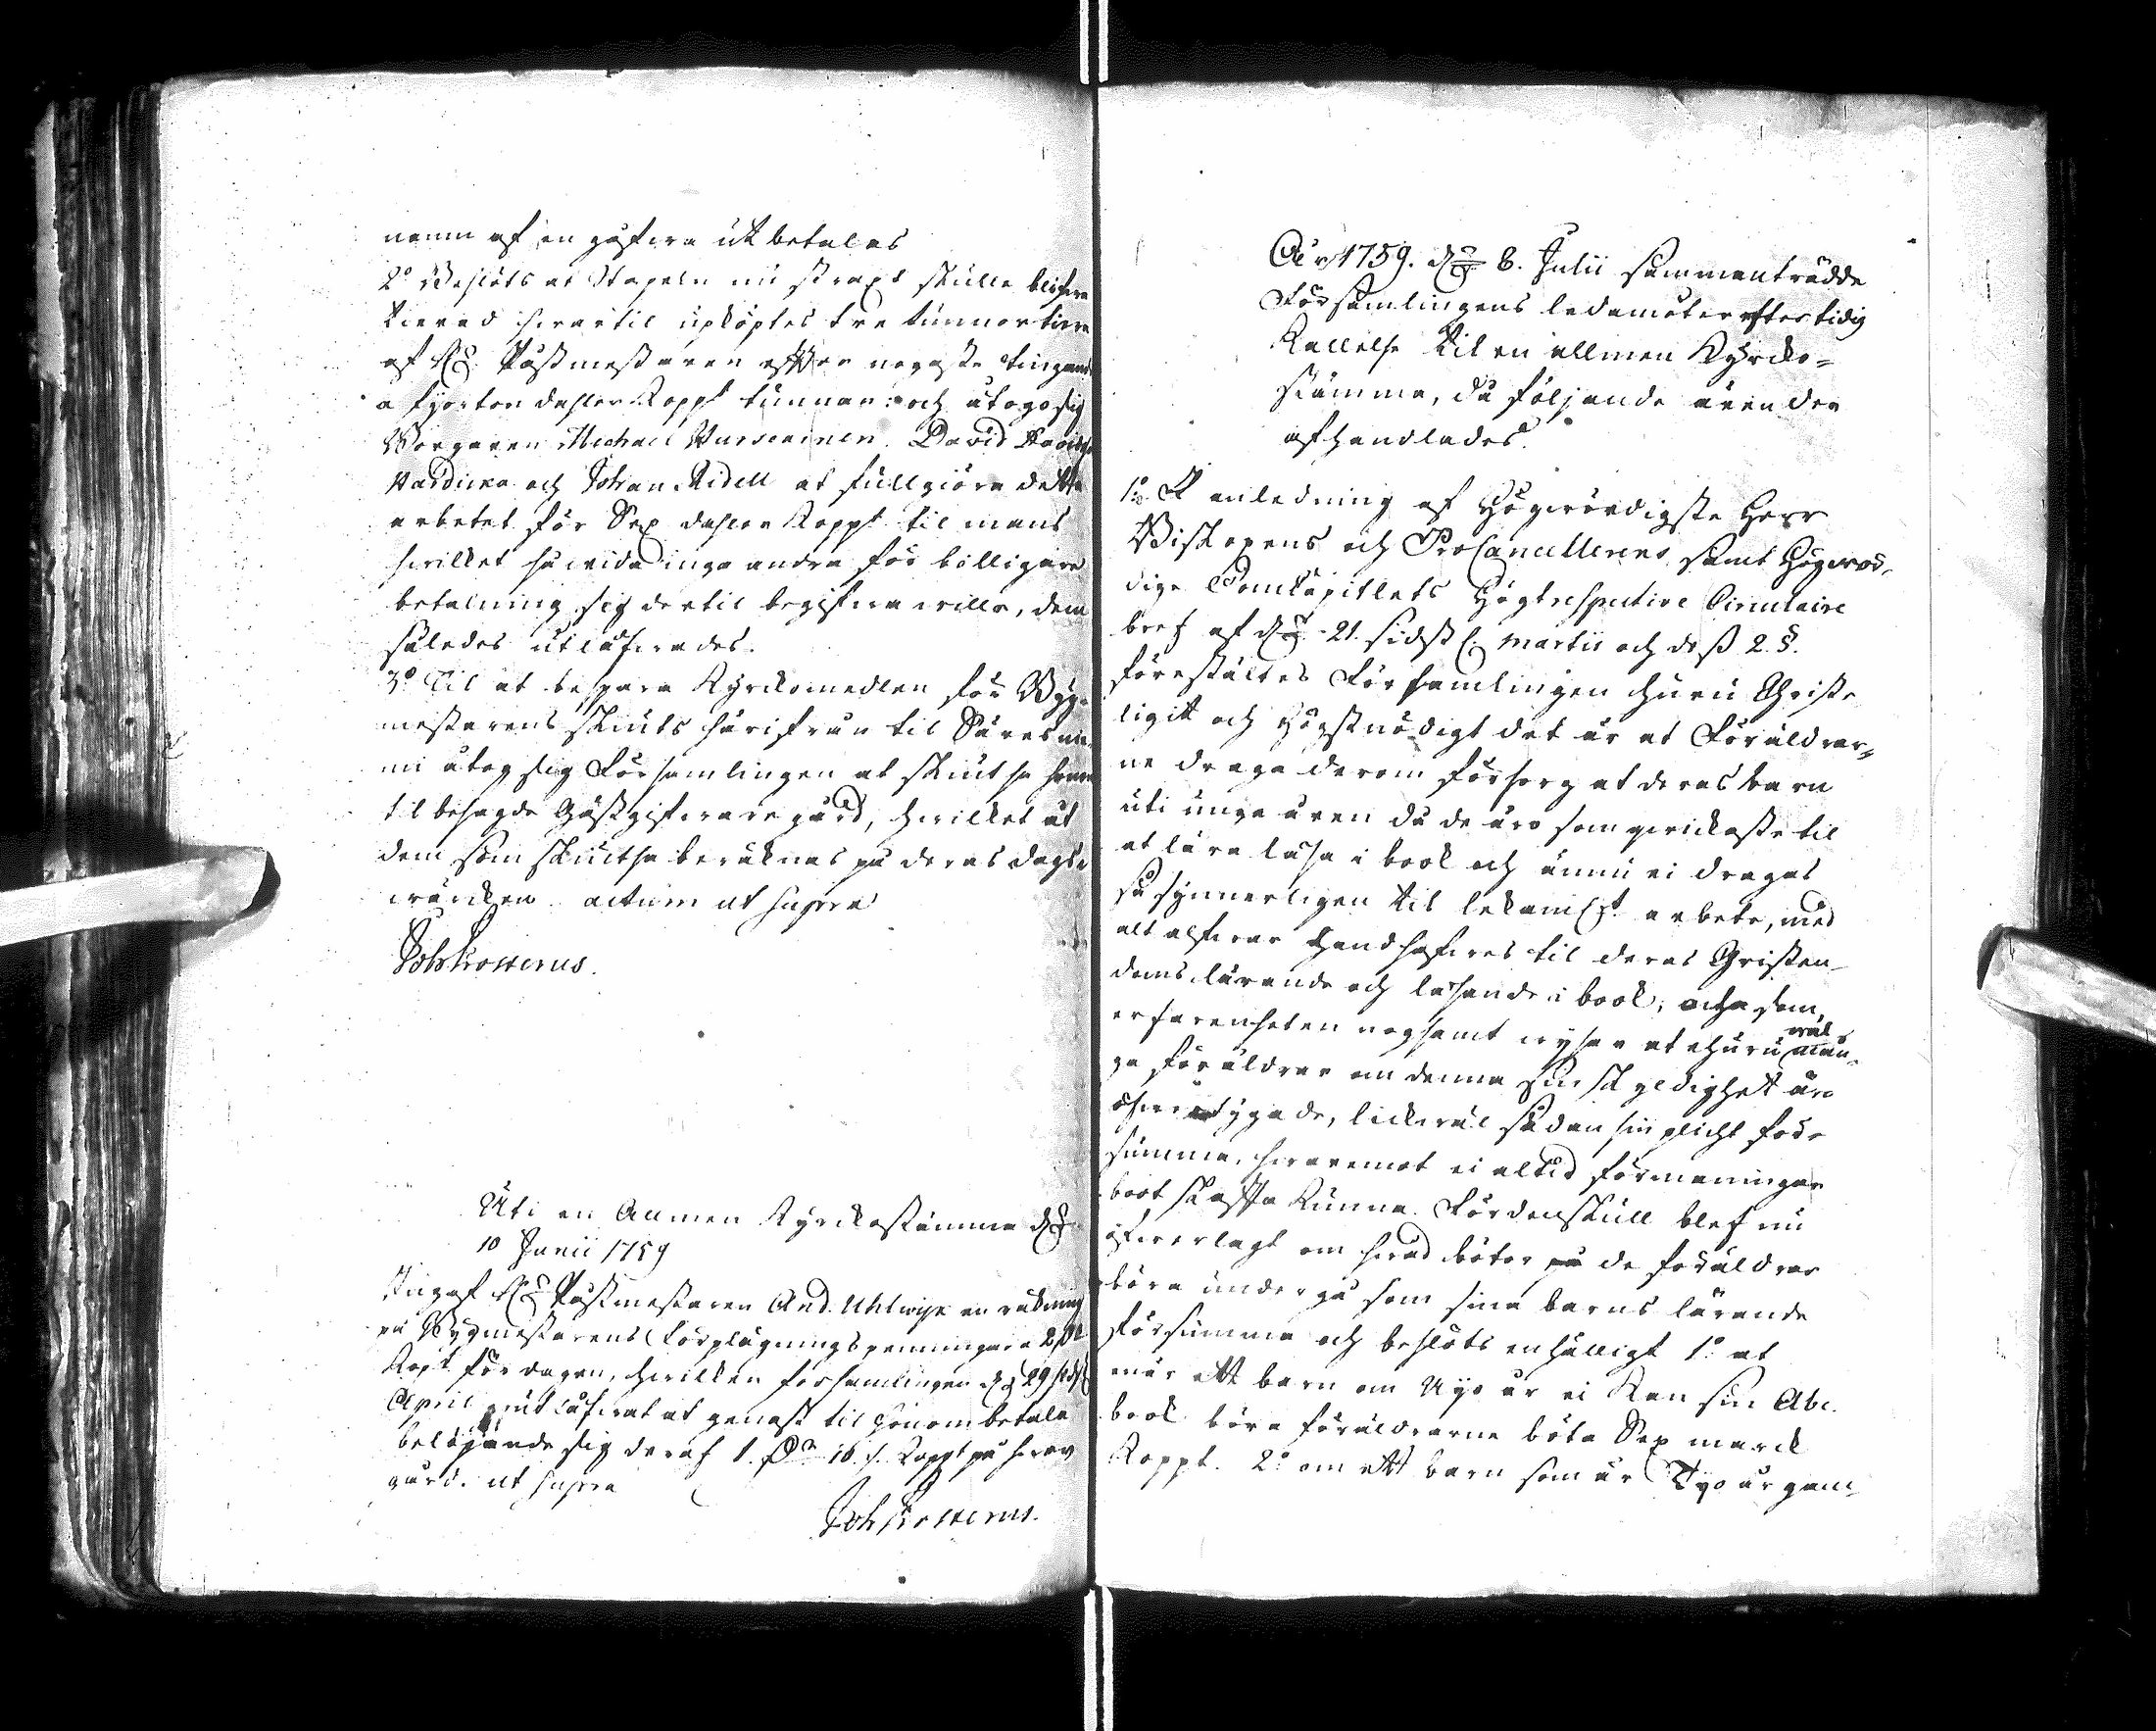 namn af en gåfwa utbetalas
2:o Beslöts at Stapeln nu straxt skulle blifwa
tierad hwartil upköptes tre tunnor tiera
af H:r Postmestaren efter nogaste tingand
a fyorton daler Kopp:t tunnan: och åtogo sig
Borgaren Michael Purseainen. David
och Johan Ridell at fullgiöra detta
arbetet för Sex daler Kopp:t til mans
hwilket så wida inga andra för billigare
betalning sig dertil begifwa wille, dem
således utlåfwades.
3:o Til at bespara Kyrckomedlen för Byg-
mestarens skiuts härifrån til Säresnie-
mi åtog sig Församlingen at skiutsa honom
til besagde Gästgifware gård, hwilket åt
dem som skiutsa beräknas på deras dags-
wärcken. actum ut supra
Joh Frosterus.
Uti en Allmen Kyrckostämma d:
10 Junii 1759
Ingaf H:r Postmestaren And. Uhlwijk en räkning
på Bygmestarens Förplägningspenningar a 2
Kop:t för dagen, hwilken församlingen d: 29 sidst
April utlåfwat at genast til honom betala
belöpande sig deraf 1. D:r 16. s. Kopp:t på hwar
gård. ut supra
Joh Frosterus.
A:o 1759. d: 8. Julii sammanträdde
Församlingens ledamöter efter tidig
Kallelse til en allmen Kyrcko-
stämma, då följande ärender
afhandlades.
1:o I anledning af Högwördigste Herr
Biskopens och ProCancellerens samt Högwör-
dige Domkapitlets Högtrespective Circulaire
bref af d: 21. sidst l. Martii och dess 2. §.
förestältes Församlingen huru Christe-
ligit och Högstnödigt det är at Föräldrar-
ne draga derom försorg at deras barn
uti unga åren då de äro som qwickaste til
at lära läsa i book och ännu ei dragas
så synnerligen til lekamligt arbete, med
alt alfwar handhafwes til deras Christen-
doms lärande och läsande i book; och som
erfarenheten nogsamt wiser at ehuru wäl mån-
ga föräldrar om denna sin skyldighet äro
öfwertygade, lickwäl sådan sin plicht för-
summa, hwaremot ei altid förmaningar
bort skaffa kunna. Fördenskull blef nu
öfwerlagt om hwad böter de föräldrar
böra undergå som sina barns lärande
försumma och beslöts enhälligt 1:o at
när ett barn om Nijo år ei kan sin Abc
book böra föräldrarne böta Sex marck
Kopp:t. 2:o om ett barn som är Tijo år gam-